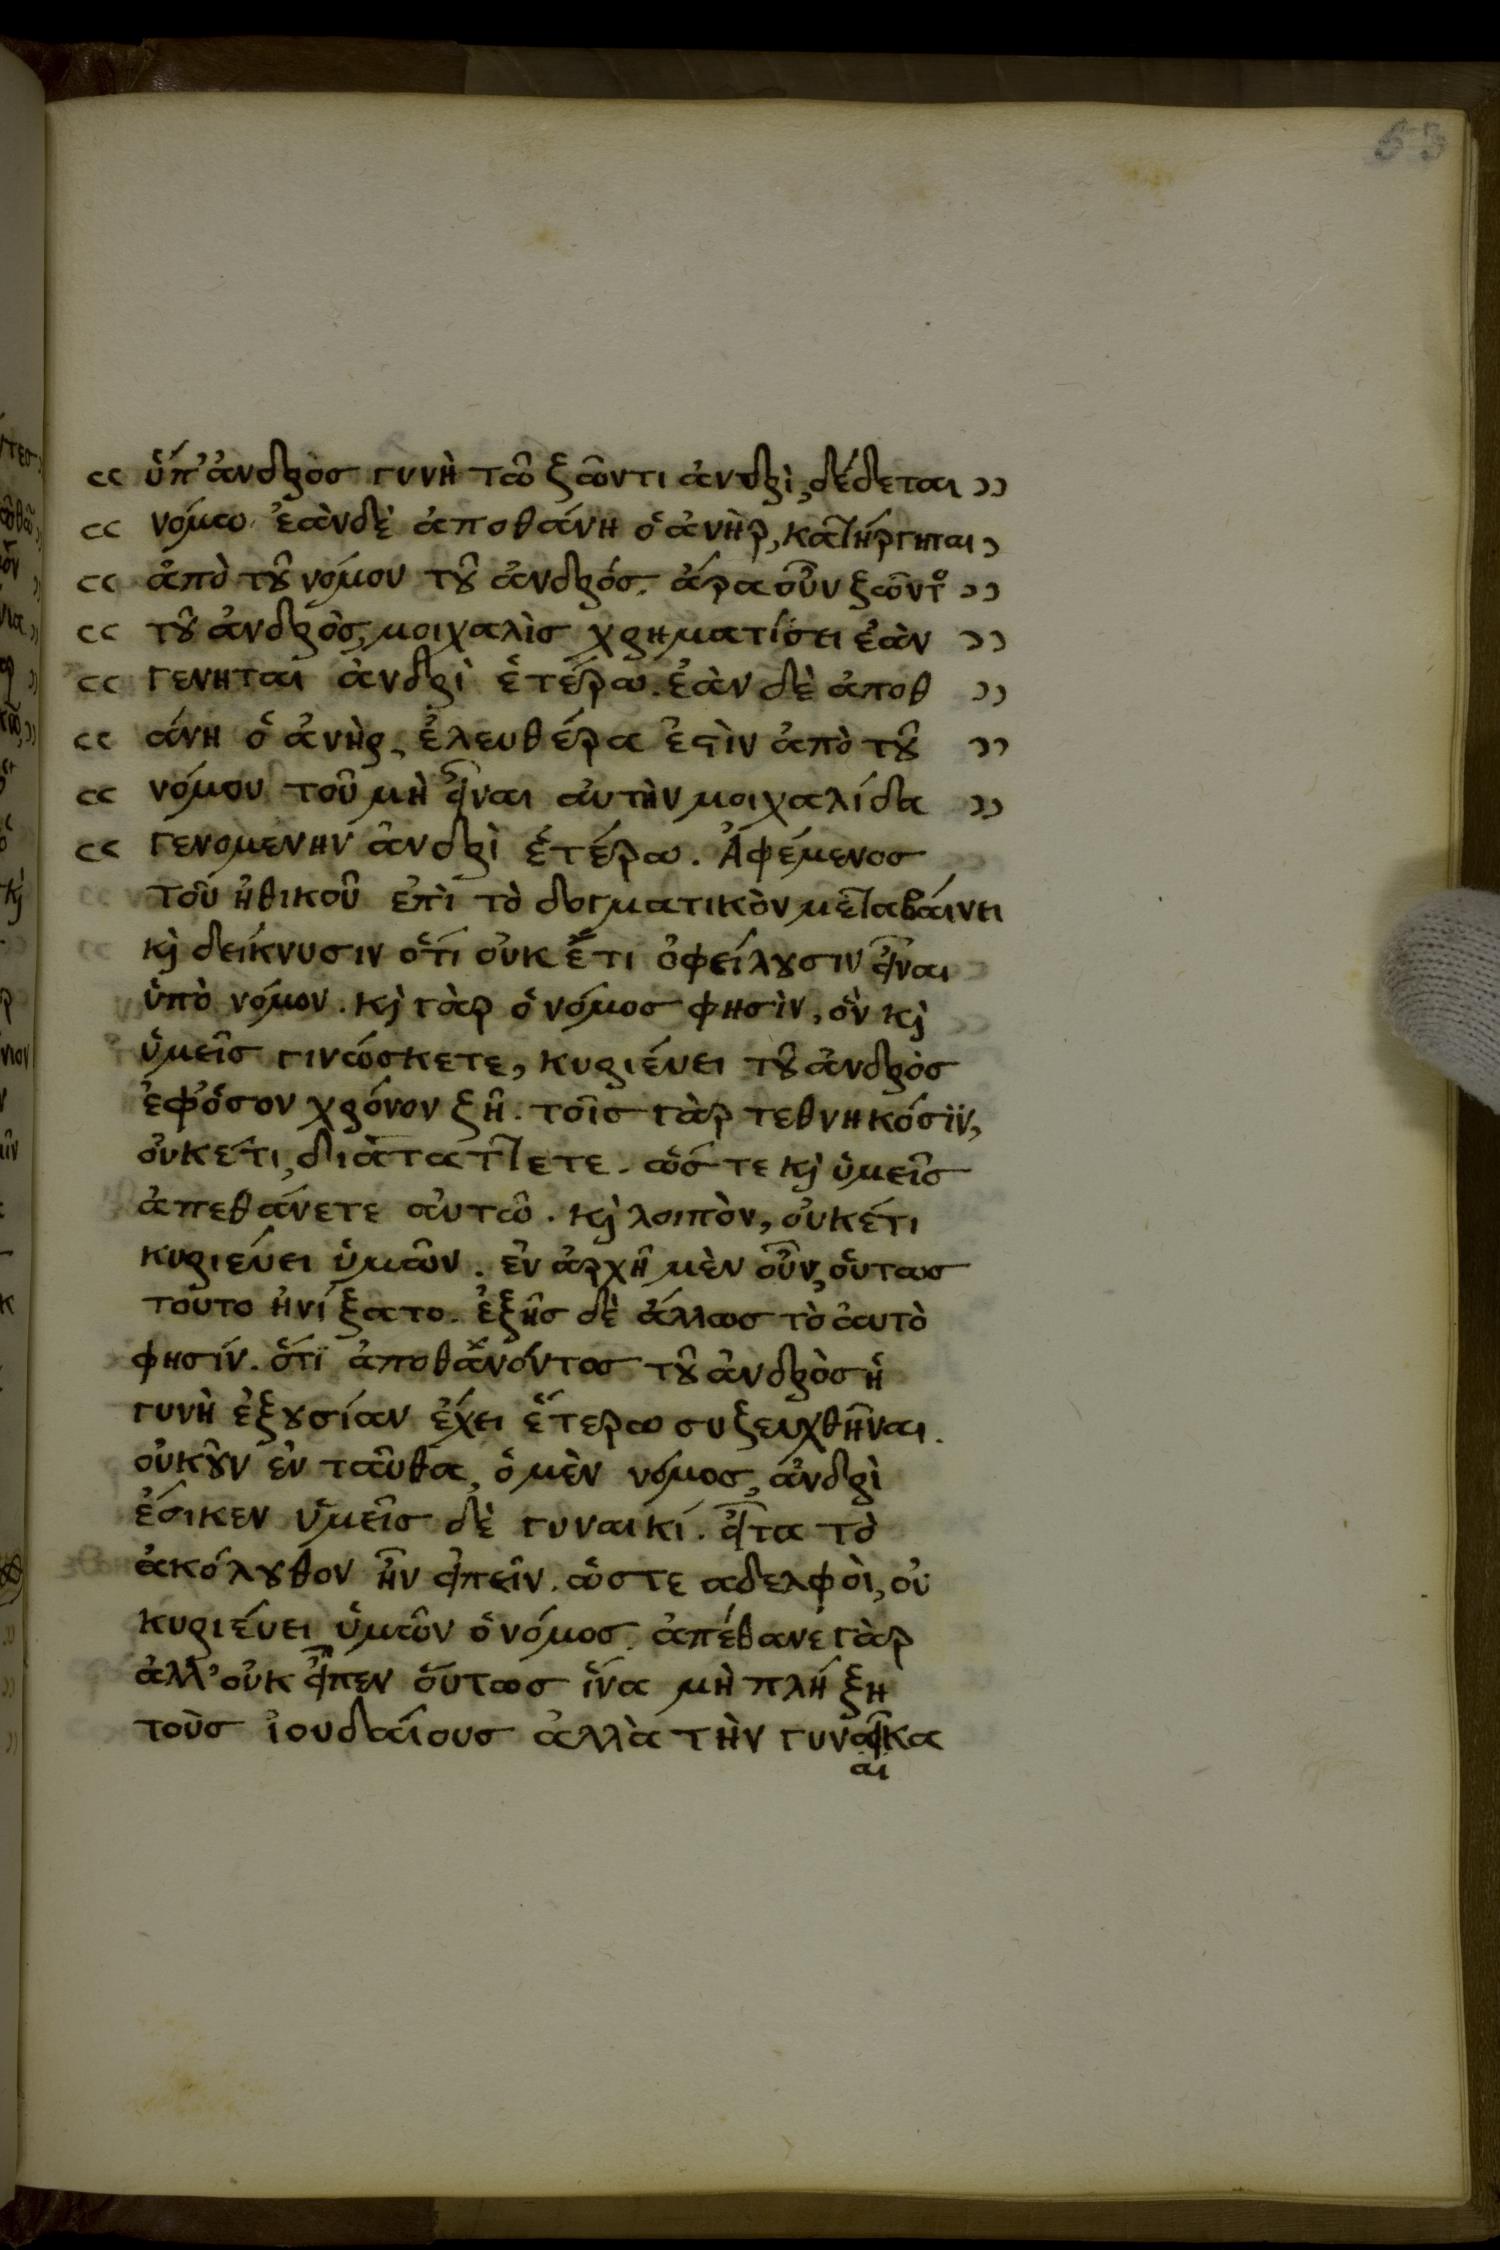 53
ὕπ' ἀνδρὸς γυνὴ τῶ ζῶντι ἀνδρὶ, δέδεται
νόμω. ἐὰν δὲ ἀποθάνη ὁ ἀνὴρ, κατήργηται
ἀπὸ τοῦ νόμου τοῦ ἀνδρός. ἄρα οὖν ζῶντο
τοῦ ἀνδρὸς, μοιχαλὶς χρηματίσει ἐὰν
γενηται ἀνδρὶ ἑτέρω. ἐὰν δὲ ἀποθ
άνη ὁ ἀνὴρ, ἐλευθέρα ἐστὶν ἀπὸ τοῦ
νόμου τοῦ μὴ εἶναι αὐτὴν μοιχαλίδα
γενομενην ἀνδρὶ ἑτέρω. Ἀφέμενος
τοῦ ἠθικοῦ ἐπὶ τὸ δογματικὸν μεταβαίνει
κὶ δείκνυσιν ὅτι οὐκ ἔτι ὀφείλουσιν εἶναι
ὑπὸ νόμον. κὶ γὰρ ὁ νόμος φησὶν, ὃν κὶ
ὑμεῖς γινώσκετε, κυριέυει τοῦ ἀνδρὸς
ἐφ' ὅσον χρόνον ζῆ. τοῖς γὰρ τεθνηκόσιν,
οὐκέτι, διατάττετε. ὥστε κὶ ὑμεῖς
ἀπεθάνετε αὐτῶ. κὶ λοιπὸν, οὐκέτι
κυριέυει ὑμῶν. ἐν ἀρχῆ μὲν οὖν, ὅυτως
τοῦτο ἠνίξατο. ἑξῆς δὲ ἄλλως τὸ ἀυτὸ
φησίν. ὅτι ἀποθανόντος τοῦ ἀνδρὸς ἡ
γυνὴ ἐξουσίαν ἔχει ἕτερω συζευχθῆναι.
οὐκοῦν ἐν ταῦθα, ὁ μὲν νόμος, ἀνδρὶ
ἔοικεν ὑμεῖς δὲ γυναικί. εἶτα τὸ
ἀκόλουθον ἦν εἰπεῖν. ὥστε αδελφοὶ, οὐ
κυριέυει ὑμῶν ὁ νόμος. ἀπέθανε γὰρ
ἀλλ' οὐκ εἶπεν ὅυτως ἵνα μὴ πλήξη
τοὺς ἰουδαίους ἀλλὰ τὴν γυναῖκα
αι